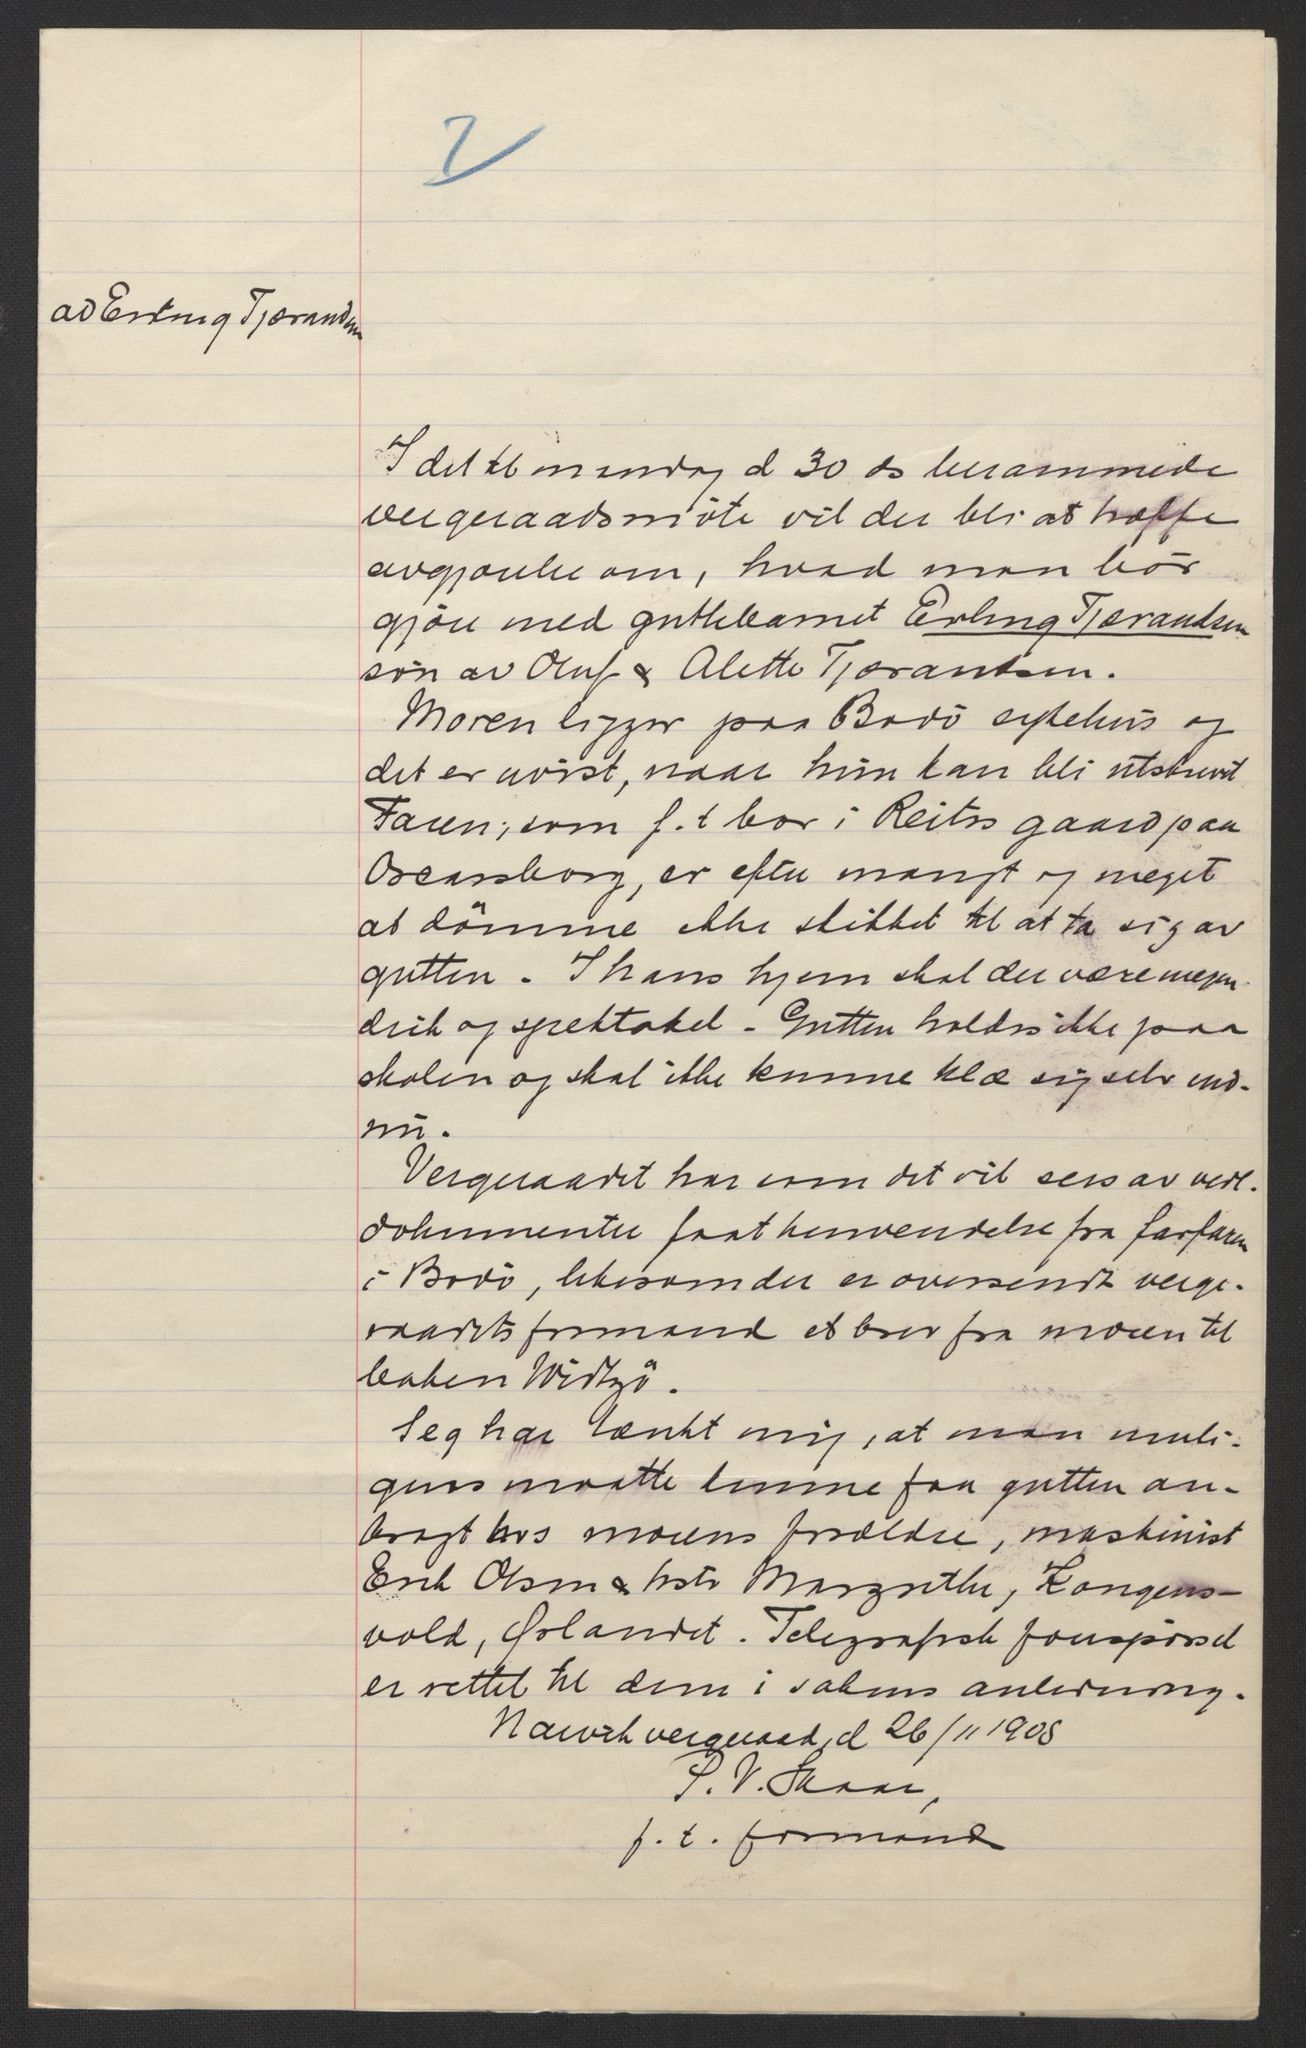 2
ad Erling Tjærandsen
I det til mandag d 30 ds berammede
vergeraadsmöte vil der bli at træffe
avgjørelse om, hvad man bör
gjöre med guttebarnet Erling Tjærandsen
sön av Oluf & Alette Tjærandsen.
Moren ligger paa Bodö sykehus og
det er uvist, naar hun kan bli utskrevet
Faren, som f. t bor i Reitss gaard paa
Oscarsborg, er efter mangt og meget
at dömme ikke skikket til at ta sig av
gutten. I hans hjem skal der være megen
drik og spektakel - Gutten holdes ikke paa
skolen og skal ikke kunne klæ sig selv end-
nu.
Vergeraadet har som det vil sees av vedl.
dokumenter faat henvendelse fra farfaren
i Bodö, likesom der er oversendt verge-
raadets formand et brev fra moren til
baker Widtzö.
Jeg har tænkt mig, at man muli-
gens maatte kunne faa gutten an-
bragt hos morens forældre, maskinist
Erik Olsen & hstr Margrethe, Kongens-
vold, Ørlandet. Telegrafisk forespörsel
er rettet til dem i sakens anledning.
Narvik vergeraad, d 26/11 1908
P. V. Skaar,
f. t. formand